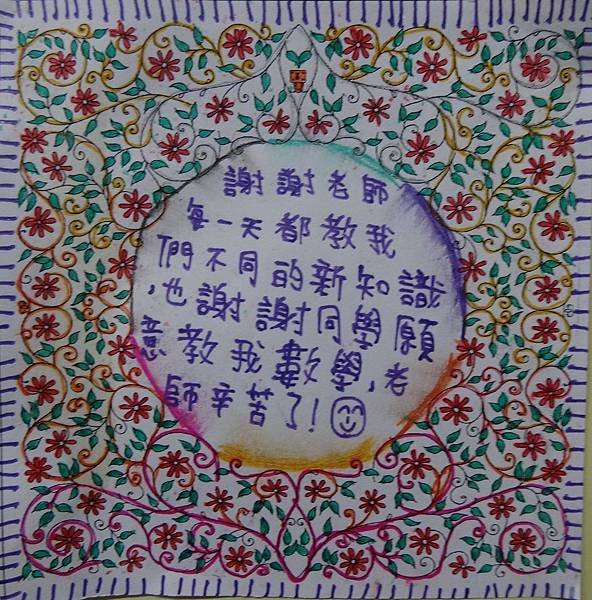 謝謝老師
每一天都教我
們不同的新知識
,也謝謝同學願
意教我數學,老
師辛苦了!